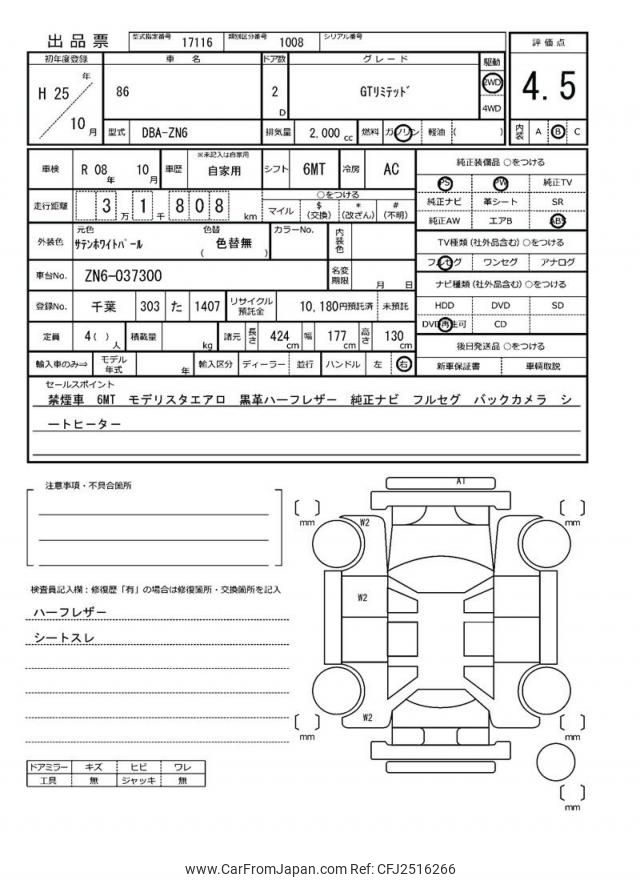 出品票 型式指定番号 17116 類別区分番号 1008 シリアル番号
初年度登録 車 名 ドア数 グレード 駆動 評価点
H 25 年 10 月 86 2 D GTリミテッド 2WD 4WD 4.5
型式 DBA-ZN6 排気量 2,000 cc 燃料 ガソリン 軽油 ( ) 内装 A B C
車検 R 08 年 10 月 車歴 ※未記入は自家用 自家用 シフト 6MT 冷房 AC
純正装備品 ○をつける
PS PW 純正TV
純正ナビ 革シート SR
純正AW エアB ABS
走行距離 3 万 1 千 8 0 8 km ○をつける
マイル $ (交換) * (改ざん) # (不明)
外装色 元色 サテンホワイトパール 色替 ( 色替無 ) カラーNo. 内装色
TV種類 (社外品含む) ○をつける
フルセグ ワンセグ アナログ
車台No. ZN6-037300 名変期限 月 日
ナビ種類 (社外品含む) ○をつける
HDD DVD SD
DVD再生可 CD
登録No. 千葉 303 た 1407 リサイクル預託金 10,180円預託済 未預託
定員 4( ) 人 積載量 kg 諸元 長さ 424 cm 幅 177 cm 高さ 130 cm
後日発送品 ○をつける
新車保証書 車輌取説
輸入車のみ⇒ モデル年式 年 輸入区分 ディーラー 並行 ハンドル 左 右
セールスポイント
禁煙車 6MT モデリスタエアロ 黒革ハーフレザー 純正ナビ フルセグ バックカメラ シ
ートヒーター
注意事項・不具合箇所
検査員記入欄：修復歴「有」の場合は修復箇所・交換箇所を記入
ハーフレザー
シートスレ
ドアミラー キズ ヒビ ワレ
工具 無 ジャッキ 無
A1
W2
W2
W2
mm
mm
mm
mm
mm
www.CarFromJapan.com Ref: CFJ2516266